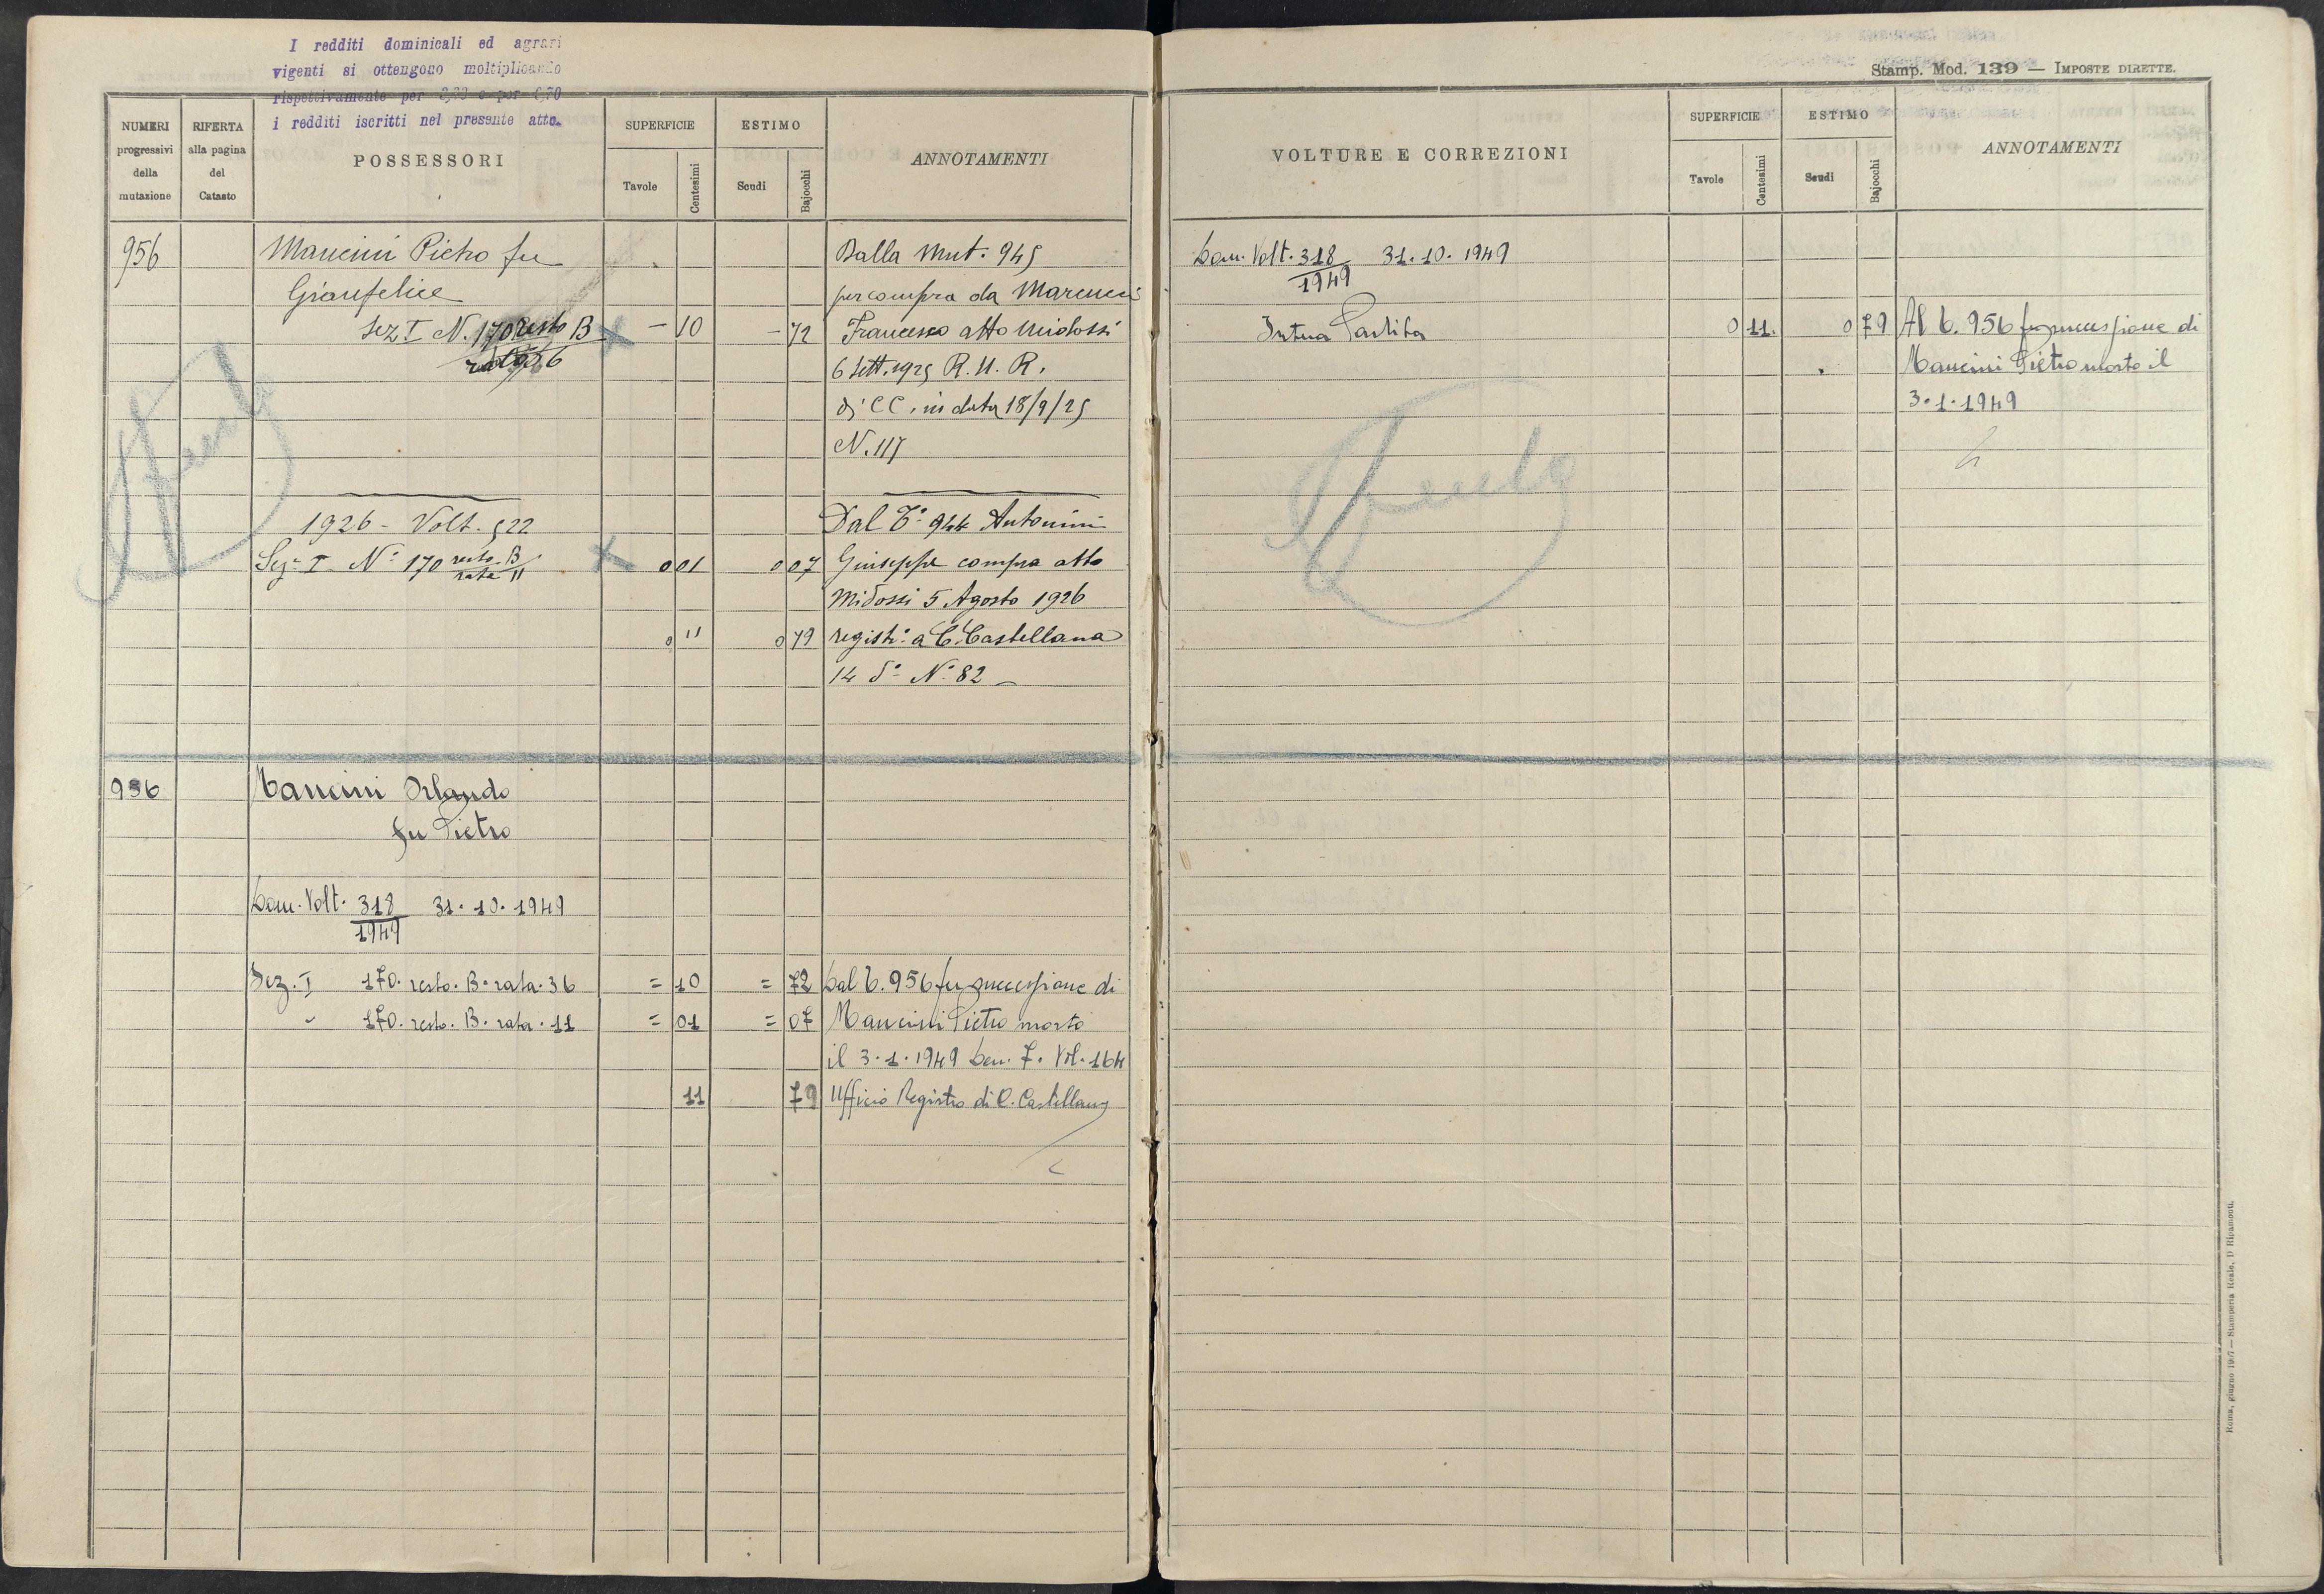 I redditi dominicali ed agrari
vigenti si ottengono moltiplicando
rispettivamente per
i redditi iscritti nel presente atto.
Stamp. Mod. 139 — IMPOSTE DIRETTE.
NUMERI progressivi della mutazione
RIFERTA alla pagina del Catasto
POSSESSORI
SUPERFICIE
Tavole
Centesimi
ESTIMO
Scudi
Bajocchi
ANNOTAMENTI
956
Mancini Pietro fu
Gianfelice
Sez I N. 170 resto B — 10 — 72
rata 36
Dalla Mut. 945
per compra da Marcucci
Francesco atto Midossi
6 Sett. 1925 R. U. R.
di CC. in data 18/9/25
N. 117
1926 - Volt. 522
Sez. I N° 170 resto B 0 01 0 07
rata 11
0 11 0 79
Dal T° 944 Antonini
Giuseppe compra atto
Midossi 5 Agosto 1926
registr. a C. Castellana
14 do N° 82
956
Mancini Orlando
fu Pietro
Dom. Volt. 318 31. 10. 1949
1949
Sez. I 170. resto. B. rata. 36 = 10 = 72
" 170. resto. B. rata. 11 = 01 = 07
11 79
Dal T. 956 per successione di
Mancini Pietro morto
il 3. 1. 1949 Den. 7. Vol. 164
Ufficio Registro di C. Castellana
VOLTURE E CORREZIONI
SUPERFICIE
Tavole
Centesimi
ESTIMO
Scudi
Bajocchi
ANNOTAMENTI
Dom. Volt. 318 31. 10. 1949
1949
Intera Partita 0 11. 0 79
Al T. 956 per successione di
Mancini Pietro morto il
3. 1. 1949
Spenta
Spenta